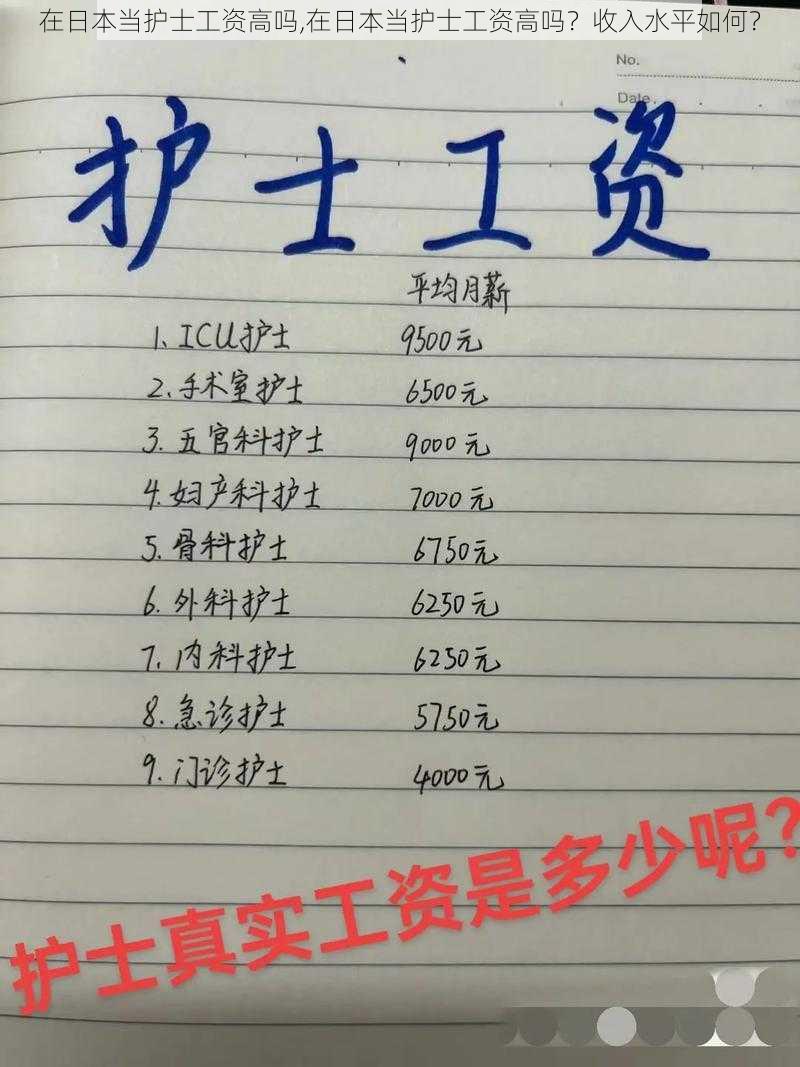 在日本当护士工资高吗,在日本当护士工资高吗？收入水平如何？
No.
Date.
护士工资
平均月薪
1、ICU护士 9500元
2、手术室护士 6500元
3. 五官科护士 9000元
4. 妇产科护士 7000元
5. 骨科护士 6750元
6. 外科护士 6250元
7. 内科护士 6250元
8. 急诊护士 5750元
9. 门诊护士 4000元
护士真实工资是多少呢?